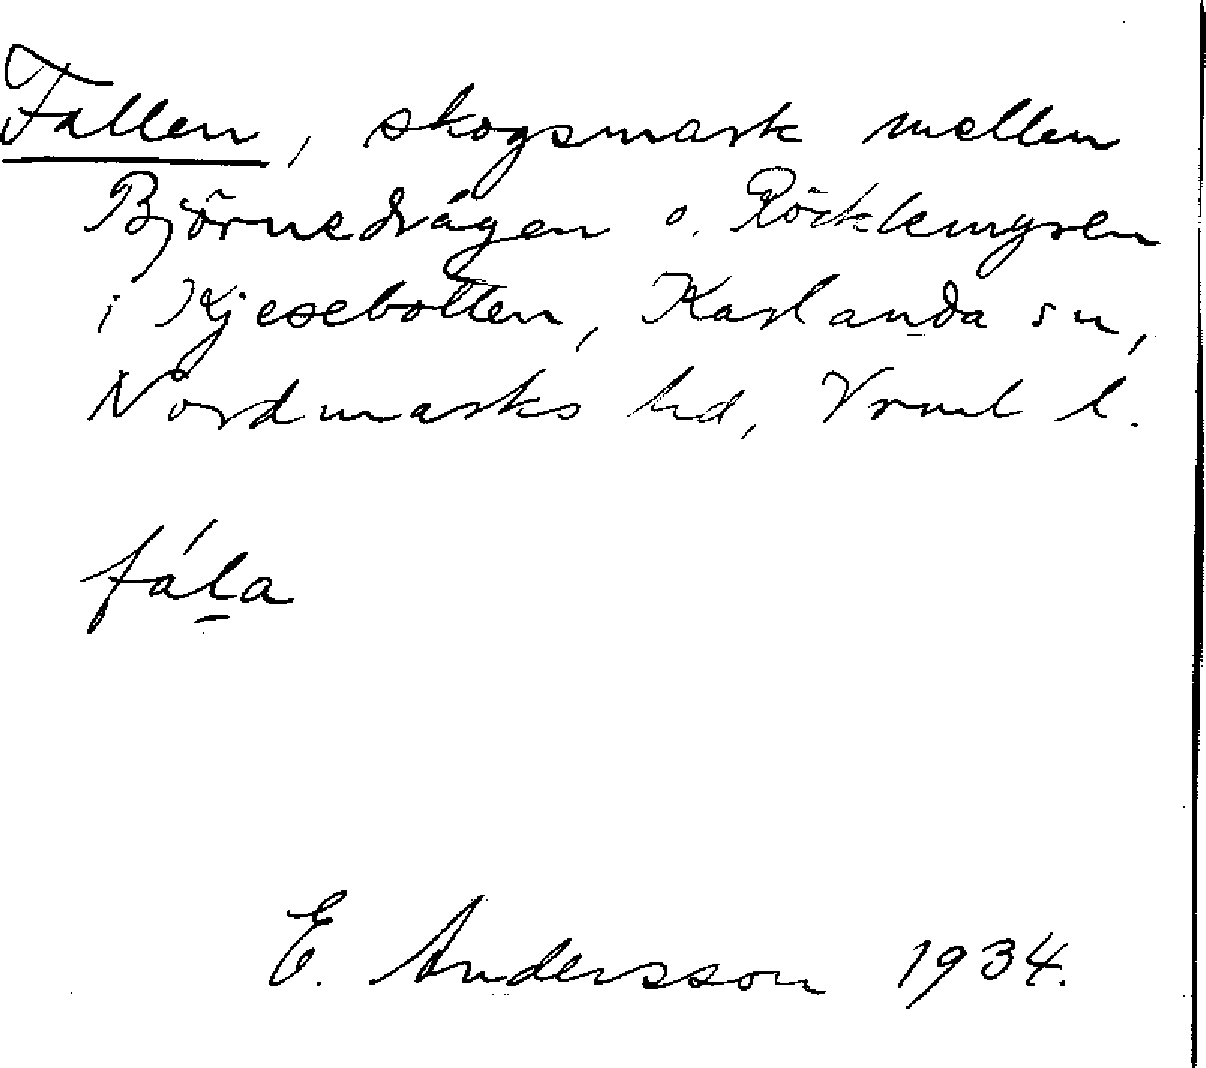 Fallen, skogsmark mellan
Björnedrågen o. Röcklemyren
i Kjesebotten, Karlanda sn,
Nordmarks hd, Vrml l.
fála
E. Andersson 1934.